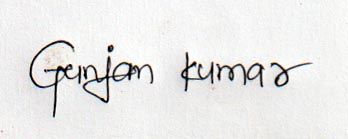 Gunjan kumar